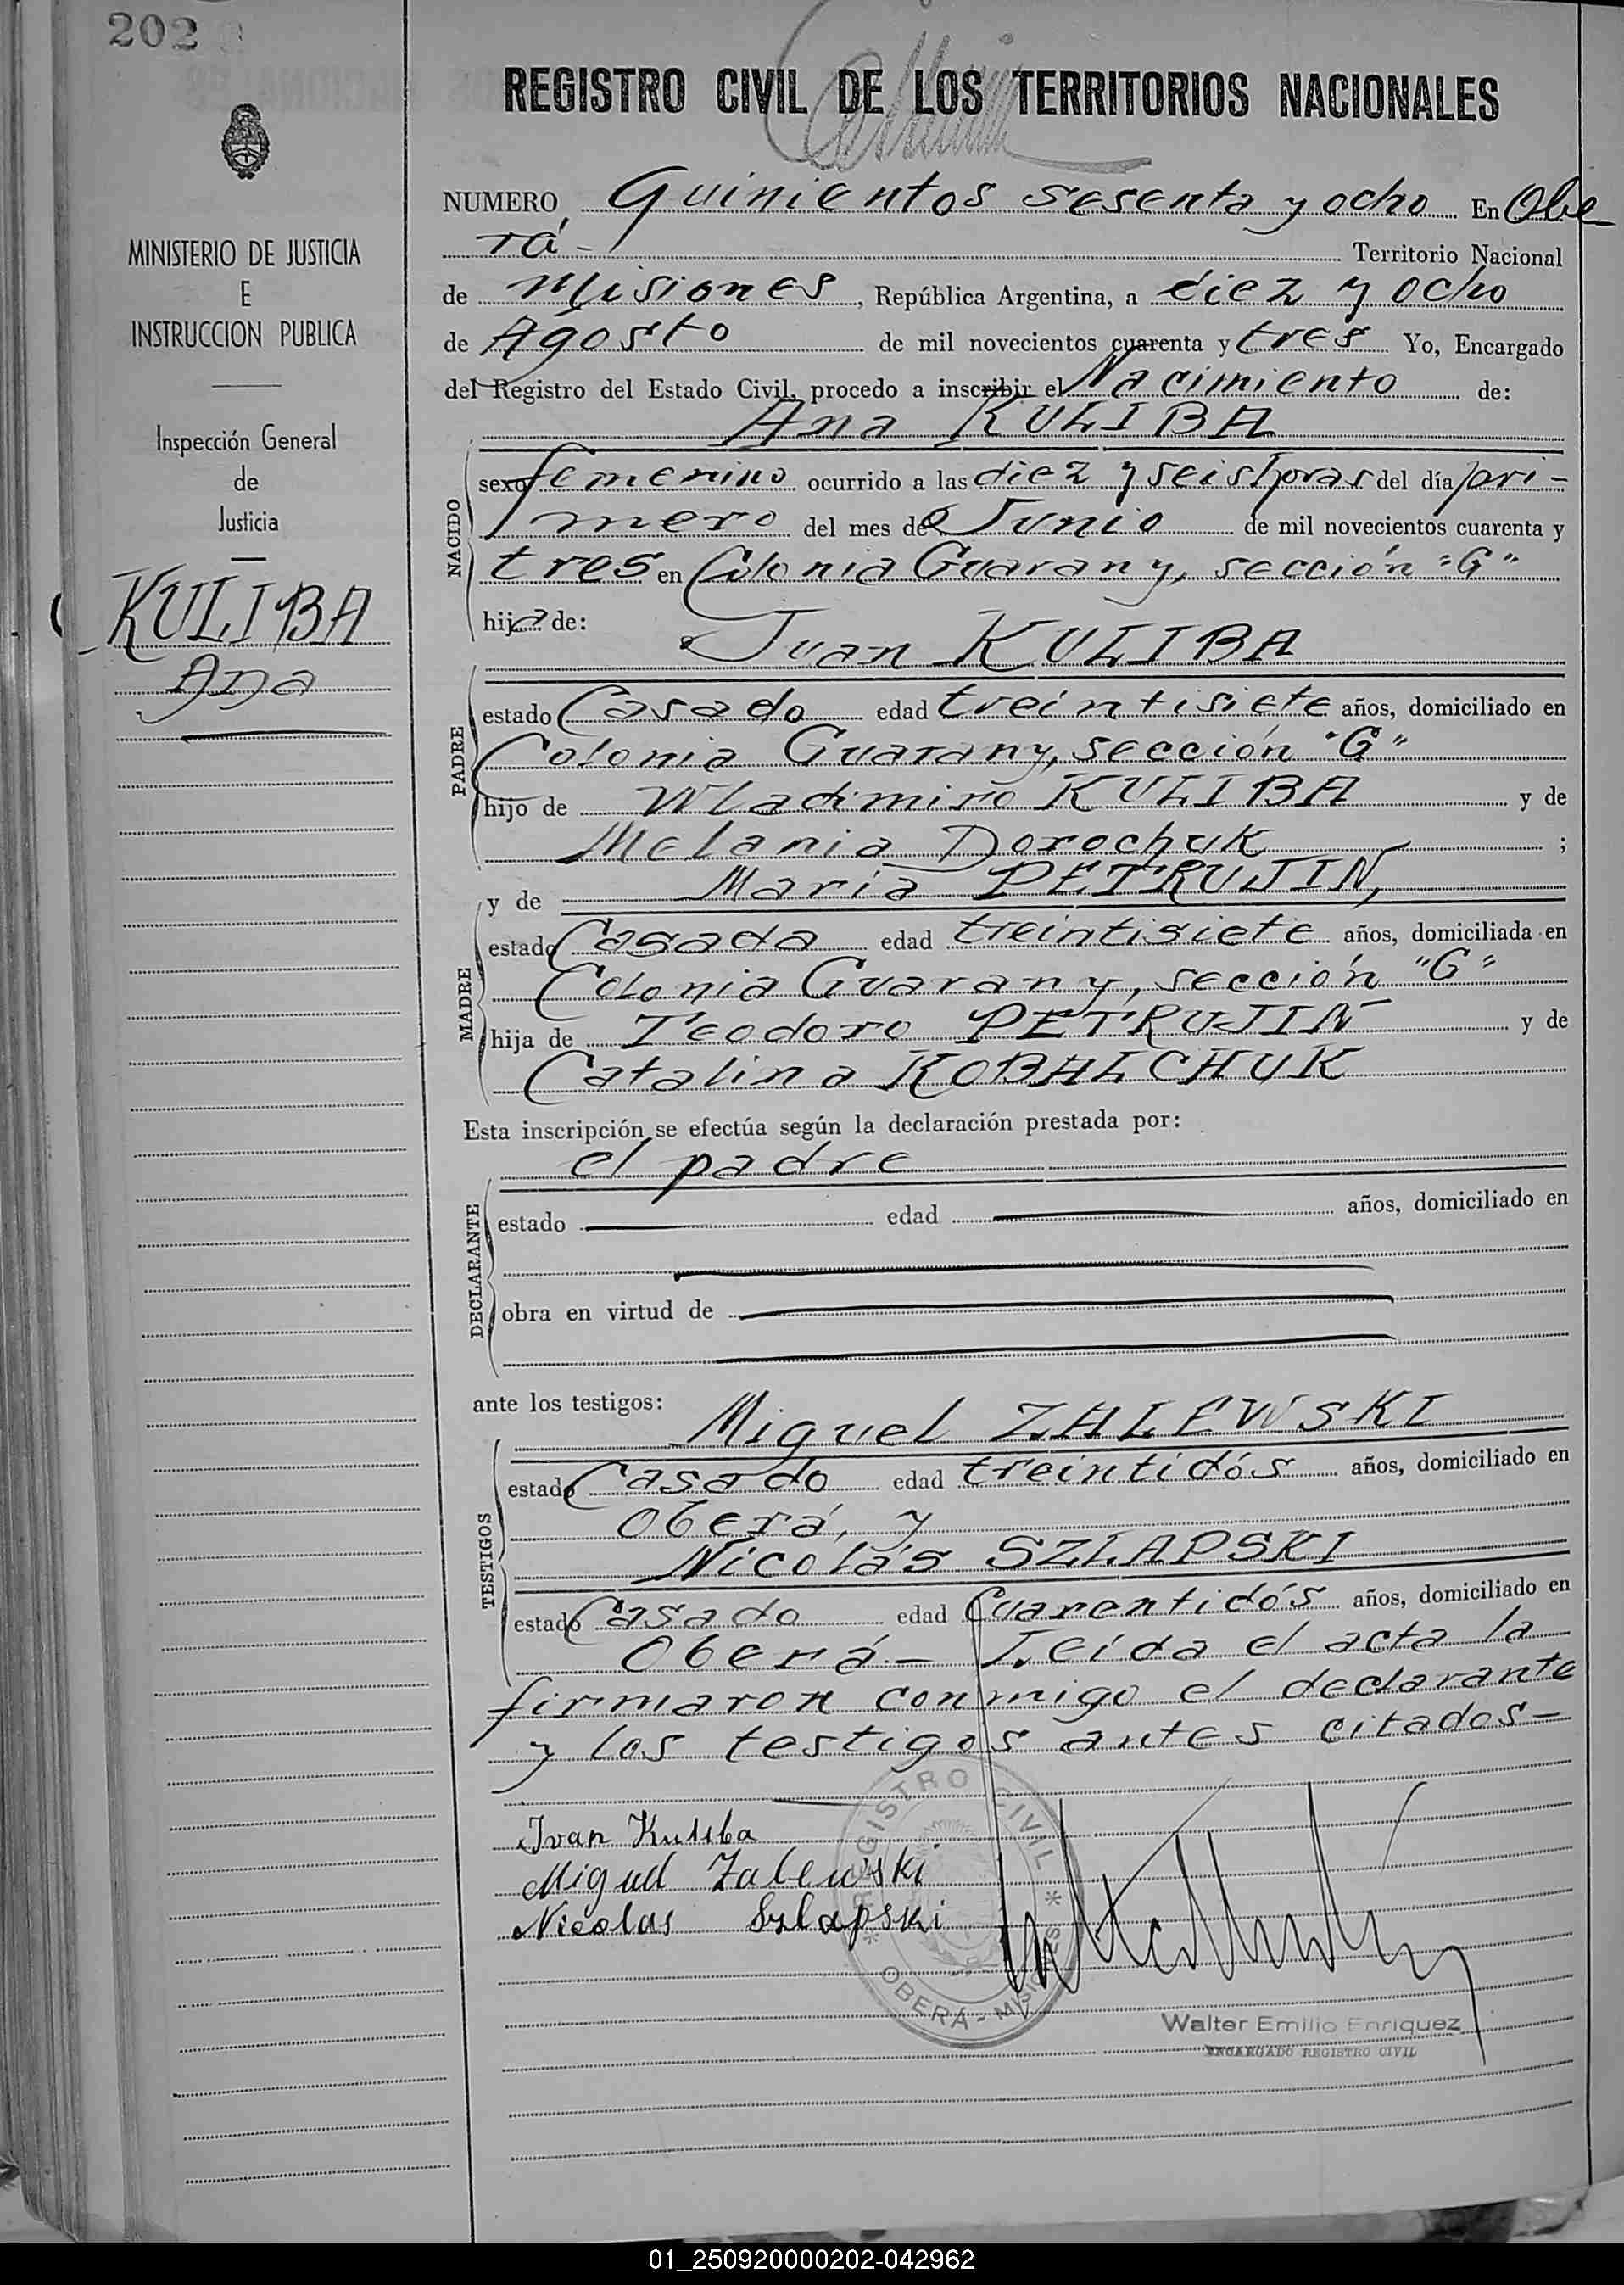 202
REGISTRO CIVIL DE LOS TERRITORIOS NACIONALES
MINISTERIO DE JUSTICIA
E
INSTRUCCION PUBLICA
Inspección General
de
Justicia
KULIBA
Ana
NUMERO, Quinientos sesenta y ocho En Obe
rá - Territorio Nacional
de Misiones, República Argentina, a diez y ocho
de Agosto de mil novecientos cuarenta y tres Yo, Encargado
del Registro del Estado Civil, procedo a inscribir el Nacimiento de:
Ana KULIBA
NACIDO
sexo femenino ocurrido a las diez y seis horas del día pri-
mero del mes de Junio de mil novecientos cuarenta y
tres en Colonia Guarany, sección "G"
hija de:
Juan KULIBA
PADRE
estado Casado edad treintisiete años, domiciliado en
Colonia Guarany, sección "G"
hijo de Wladimiro KULIBA y de
Melania Dorochuk ;
y de Maria PETRUJIN,
MADRE
estado Casada edad treintisiete años, domiciliada en
Colonia Guarany, sección "G"
hija de Teodoro PETRUJIN y de
Catalina KOBALCHUK
Esta inscripción se efectúa según la declaración prestada por:
el padre
DECLARANTE
estado edad años, domiciliado en
obra en virtud de
ante los testigos:
Miguel ZALEWSKI
TESTIGOS
estado Casado edad treintidós años, domiciliado en
Oberá, y
Nicolás SZLAPSKI
estado Casado edad Cuarentidós años, domiciliado en
Oberá.- Leída el acta la
firmaron conmigo el declarante
y los testigos antes citados-
Ivan Kuliba
Miguel Zalewski
Nicolas Szlapski
REGISTRO CIVIL
OBERÁ - MISIONES
Walter Emilio Enriquez
ENCARGADO REGISTRO CIVIL
01_250920000202-042962